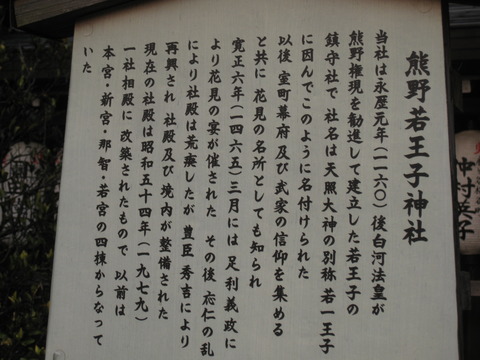 熊野若王子神社
当社は永歴元年(一一六〇)後白河法皇が
熊野権現を勧進して建立した若王子の
鎮守社で 社名は天照大神の別称 若一王子
に因んでこのように名付けられた
以後 室町幕府及び武家の信仰を集める
と共に 花見の名所としても知られ
寛正六年(一四六五)三月には 足利義政に
より花見の宴が催された その後 応仁の乱
により社殿は荒廃したが 豊臣秀吉により
再興され 社殿及び境内が整備された
現在の社殿は昭和五十四年(一九七九)
一社相殿に 改築されたもので 以前は
本宮・新宮・那智・若宮の四棟からなって
いた
中村英子